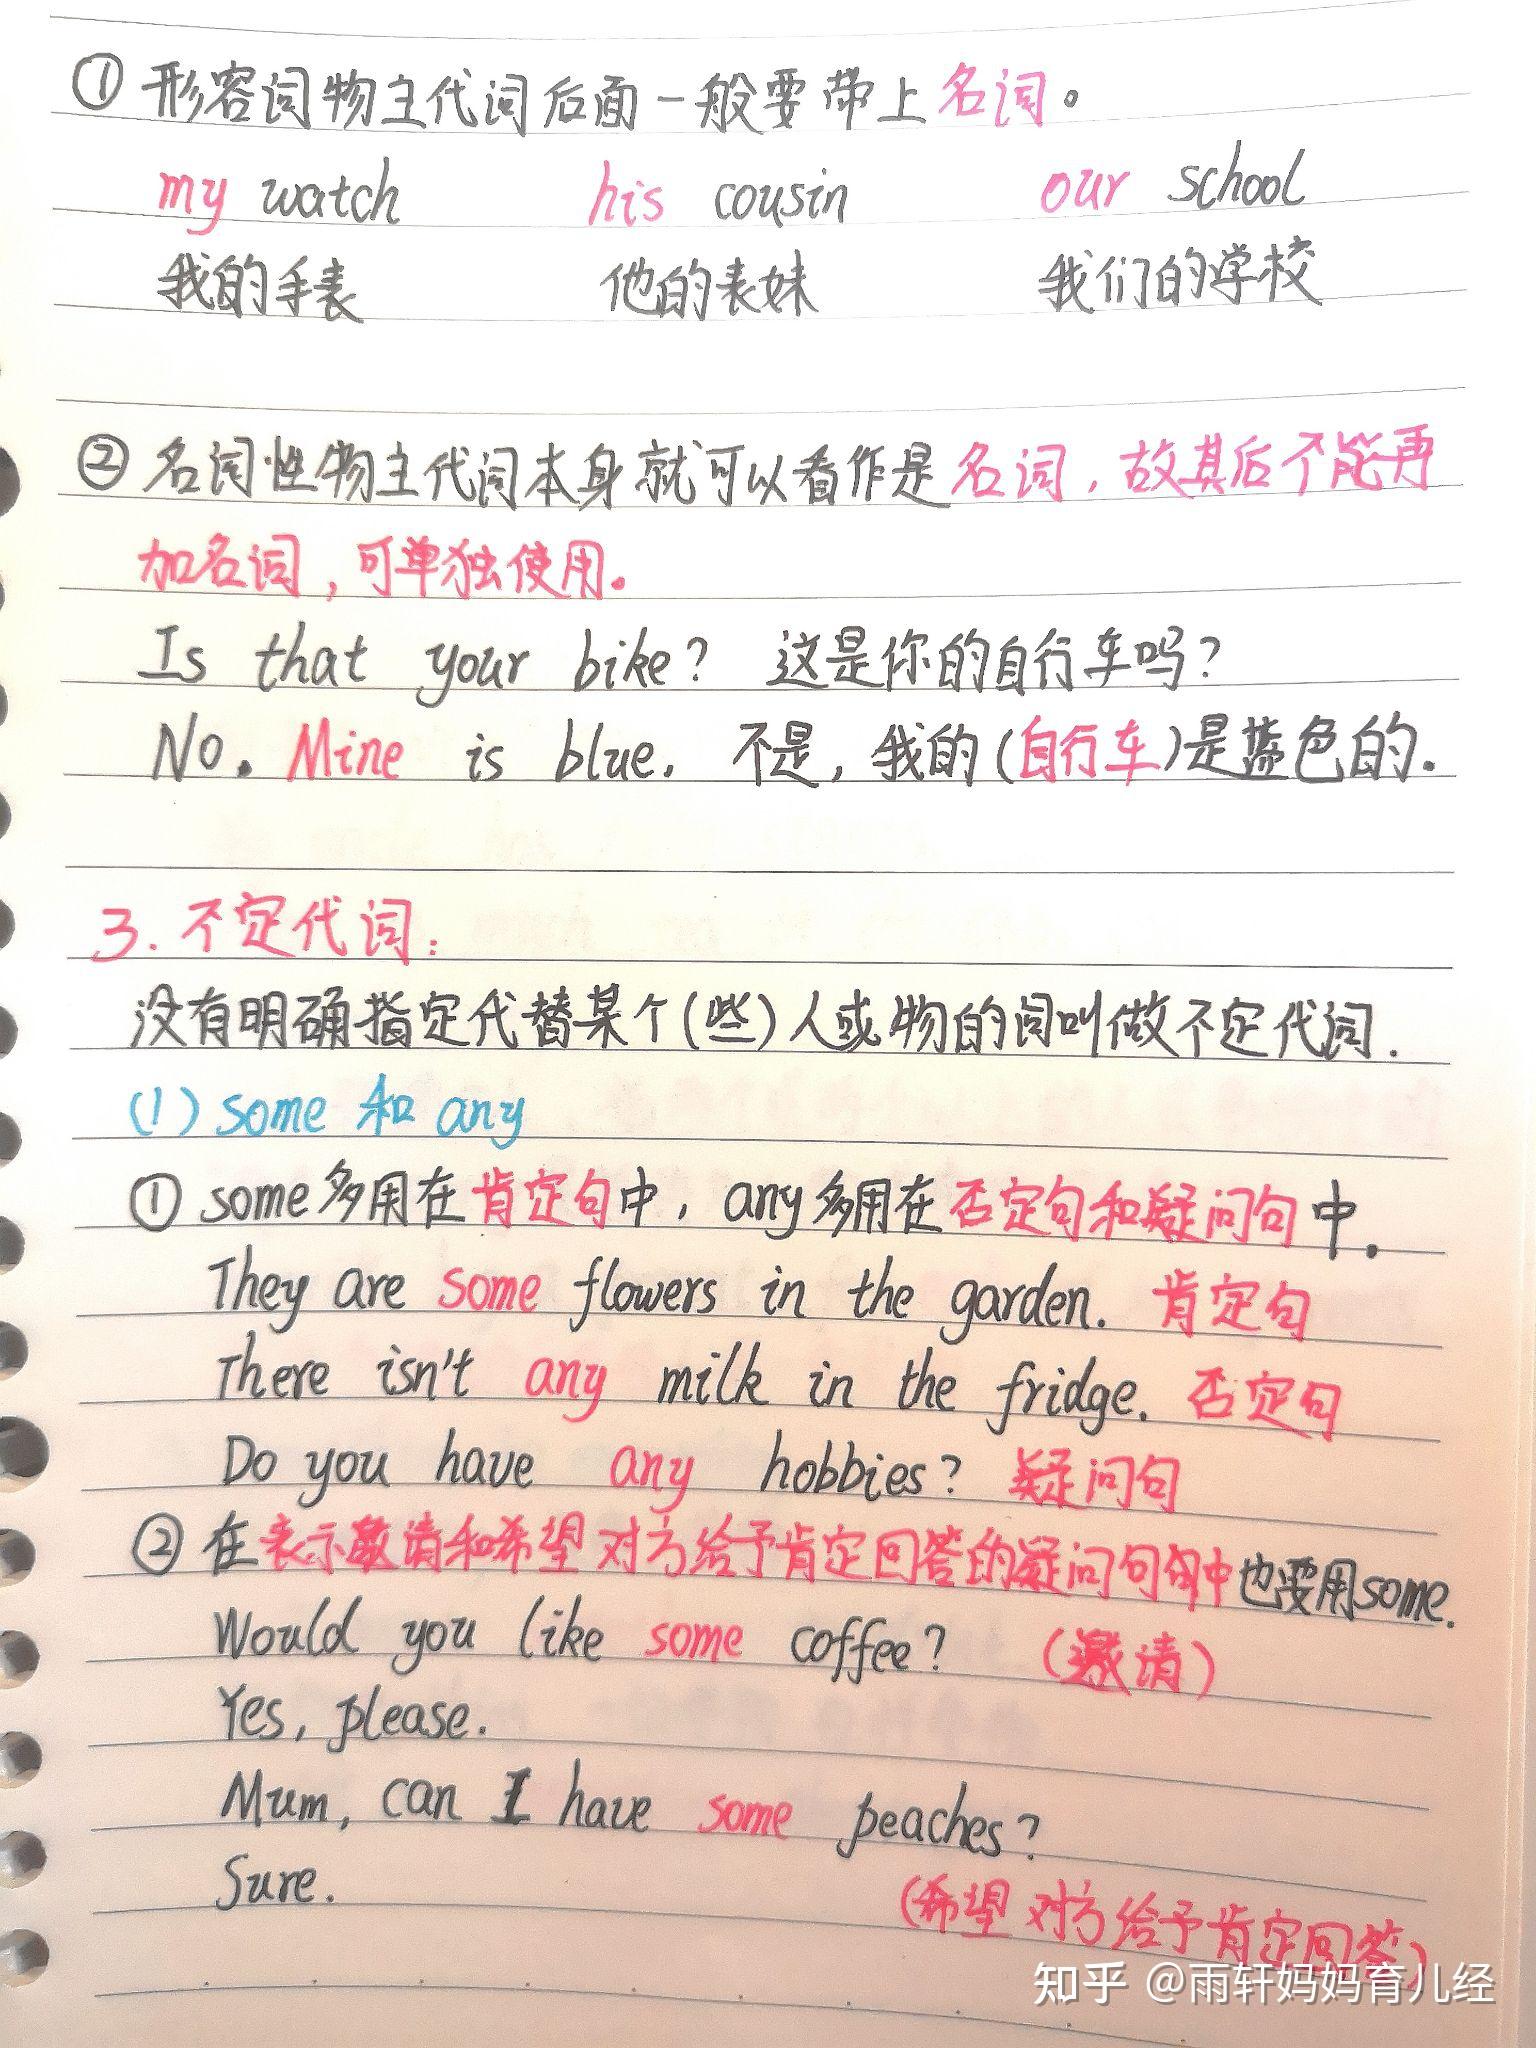 ① 形容词物主代词后面一般要带上名词。
my watch his cousin our school
我的手表 他的表妹 我们的学校
② 名词性物主代词本身就可以看作是名词，故其后不能再
加名词，可单独使用。
Is that your bike? 这是你的自行车吗?
No. Mine is blue. 不是，我的(自行车)是蓝色的.
3. 不定代词:
没有明确指定代替某个(些)人或物的词叫做不定代词.
(1) some 和 any
① some多用在肯定句中，any多用在否定句和疑问句中.
They are some flowers in the garden. 肯定句
There isn't any milk in the fridge. 否定句
Do you have any hobbies? 疑问句
② 在表示邀请和希望对方给予肯定回答的疑问句中也要用some.
Would you like some coffee? (邀请)
Yes, please.
Mum, can I have some peaches?
Sure.
(希望对方给予肯定回答)
知乎 @雨轩妈妈育儿经